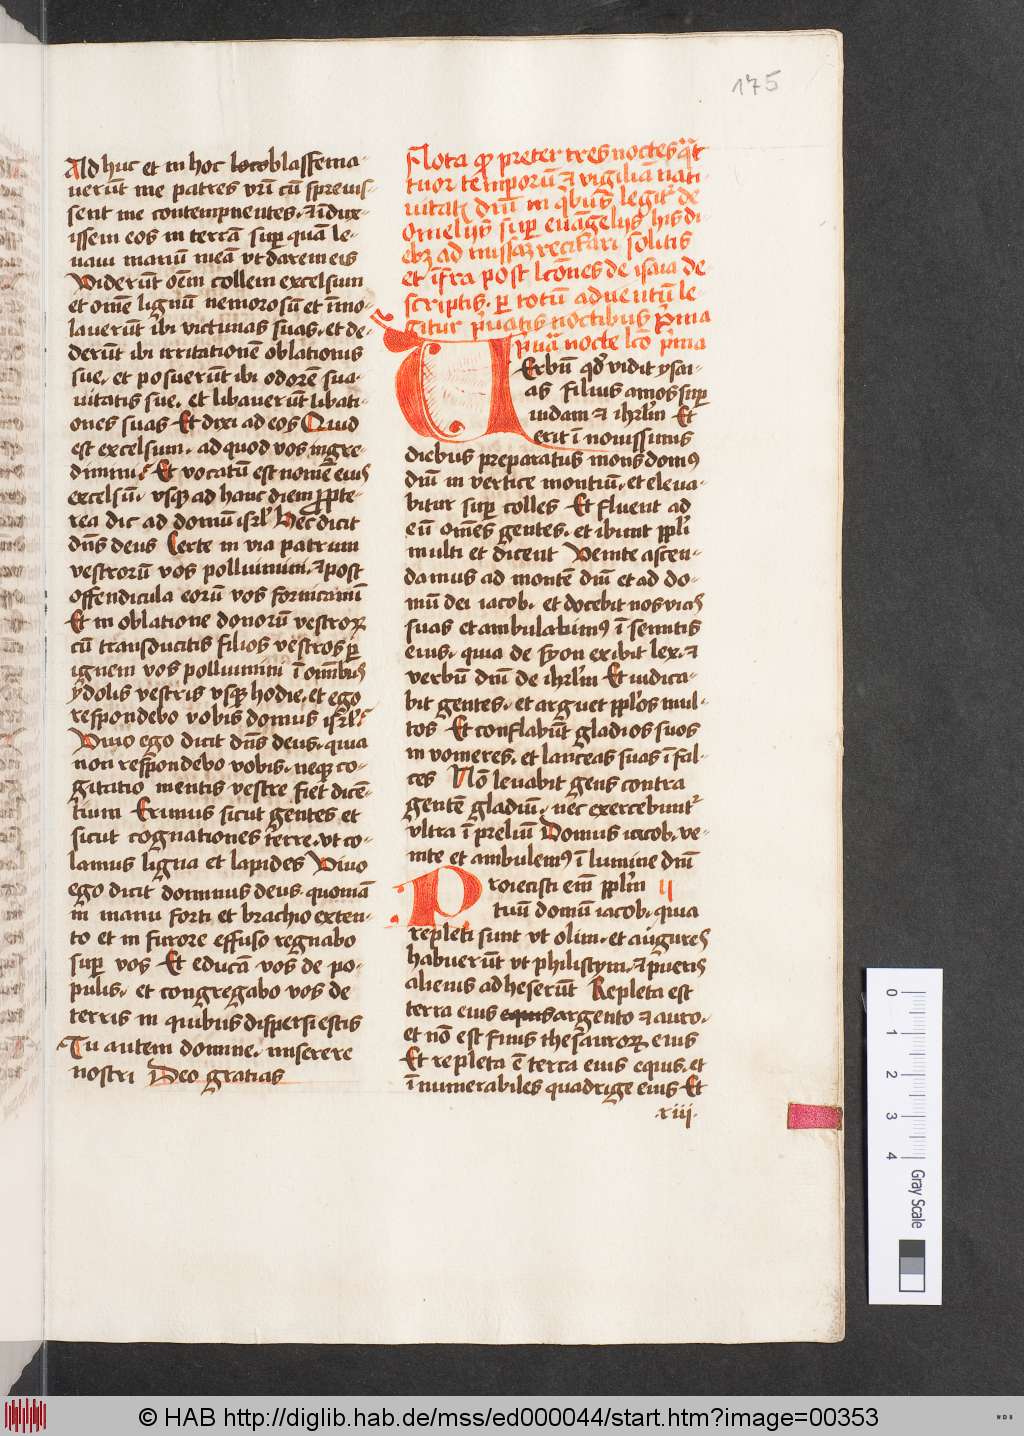 175
Ad huc et in hoc locoblasfema-
uerūt me patres vr̄i cū spreuis-
sent me contempnentes. ⁊ īdux-
issem eos in terrā sup̱ quā le-
uaui manū meā vt darem eis
Viderūt oēm collem excelsum
et omē lignū nemorosū et īmo-
lauerūt ibi victimas suas. et de-
derūt ibi irritationē oblationis
sue. et posuerūt ibi odorē sua-
uitatis sue. et libauerūt libati-
ones suas Et dixi ad eos Quid
est excelsum. ad quod vos ingre-
dimini? Et vocatū est nomē eius
excelsū. vsqꝫ ad hanc diem ꝓpte-
rea dic ad domū isrl̄ Hec dicit
dn̄s deus Certe in via patrum
vestrorū vos polluimini. ⁊ post
offendicula eorū vos fornicamī
Et in oblatione donorū vestroꝝ
cū transducitis filios vestros ꝑ
ignem vos polluimini ī om̄ibus
ydolis vestris vsqꝫ hodie. et ego
respondebo vobis domus isrl̄?
Viuo ego dicit dn̄s deus. quia
non respondebo vobis. neqꝫ co-
gitatio mentis vestre fiet dicē-
tium Erimus sicut gentes et
sicut cognationes terre. vt co-
lamus ligna et lapides Viuo
ego dicit dominus deus. quoniā
in manu forti et brachio exten-
to et in furore effuso regnabo
sup̱ vos Et educā vos de po-
pulis. et congregabo vos de
terris in quibus dispersi estis
Tu autem domine. miserere
nostri Deo gratias
Nota qꝫ preter tres noctes q̄t
tuor temporū ⁊ vigiliā nati-
uitatꝭ dn̄i in q̄bus legit᷑ de
Omeliis sup̱ euāgeliis his di-
ebꝫ ad missaꝫ recitari solitis
et īfra post lc̄ōnes de isaia de-
scriptis. ꝑ totū aduentū le-
gitur p̄uatis noctibus P̄ma
p̄uā nocte lc̄o p̄ma
Verbū qd̄ vidit ysai-
as filius amos sup̱
iudam ⁊ ihrl̄m Et
erit ī nouissimis
diebus preparatus mons domꝰ
dn̄i in vertice montiū. et eleua-
bitur sup̱ colles Et fluent ad
eū omēs gentes. et ibunt ppl̄i
multi et dicent Venite ascen-
damus ad montē dn̄i et ad do-
mū dei iacob. et docebit nos vias
suas et ambulabimꝰ ī semitis
eius. quia de syon exibit lex. ⁊
verbū dn̄i de ihrl̄m Et iudica-
bit gentes. et arguet ppl̄os mul-
tos Et conflabūt gladios suos
in vomeres. et lanceas suas ī fal-
ces Nō leuabit gens contra
gentē gladiū. nec exercebunt᷑
vltra ī preliū Domus iacob. ve-
nite et ambulemꝰ ī lumine dn̄i
Proiecisti em̄ ppl̄m ii
tuū domū iacob. quia
repleti sunt vt olim. et augures
habuerūt vt philistym. ⁊ pueris
alienis adheserūt Repleta est
terra eius equis argento ⁊ auro.
et nō est finis thesauroꝝ eius
Et repleta ē terra eius equis. et
īnumerabiles quadrige eius Et
xiii.
0 1 2 3 4
Gray Scale
© HAB http://diglib.hab.de/mss/ed000044/start.htm?image=00353